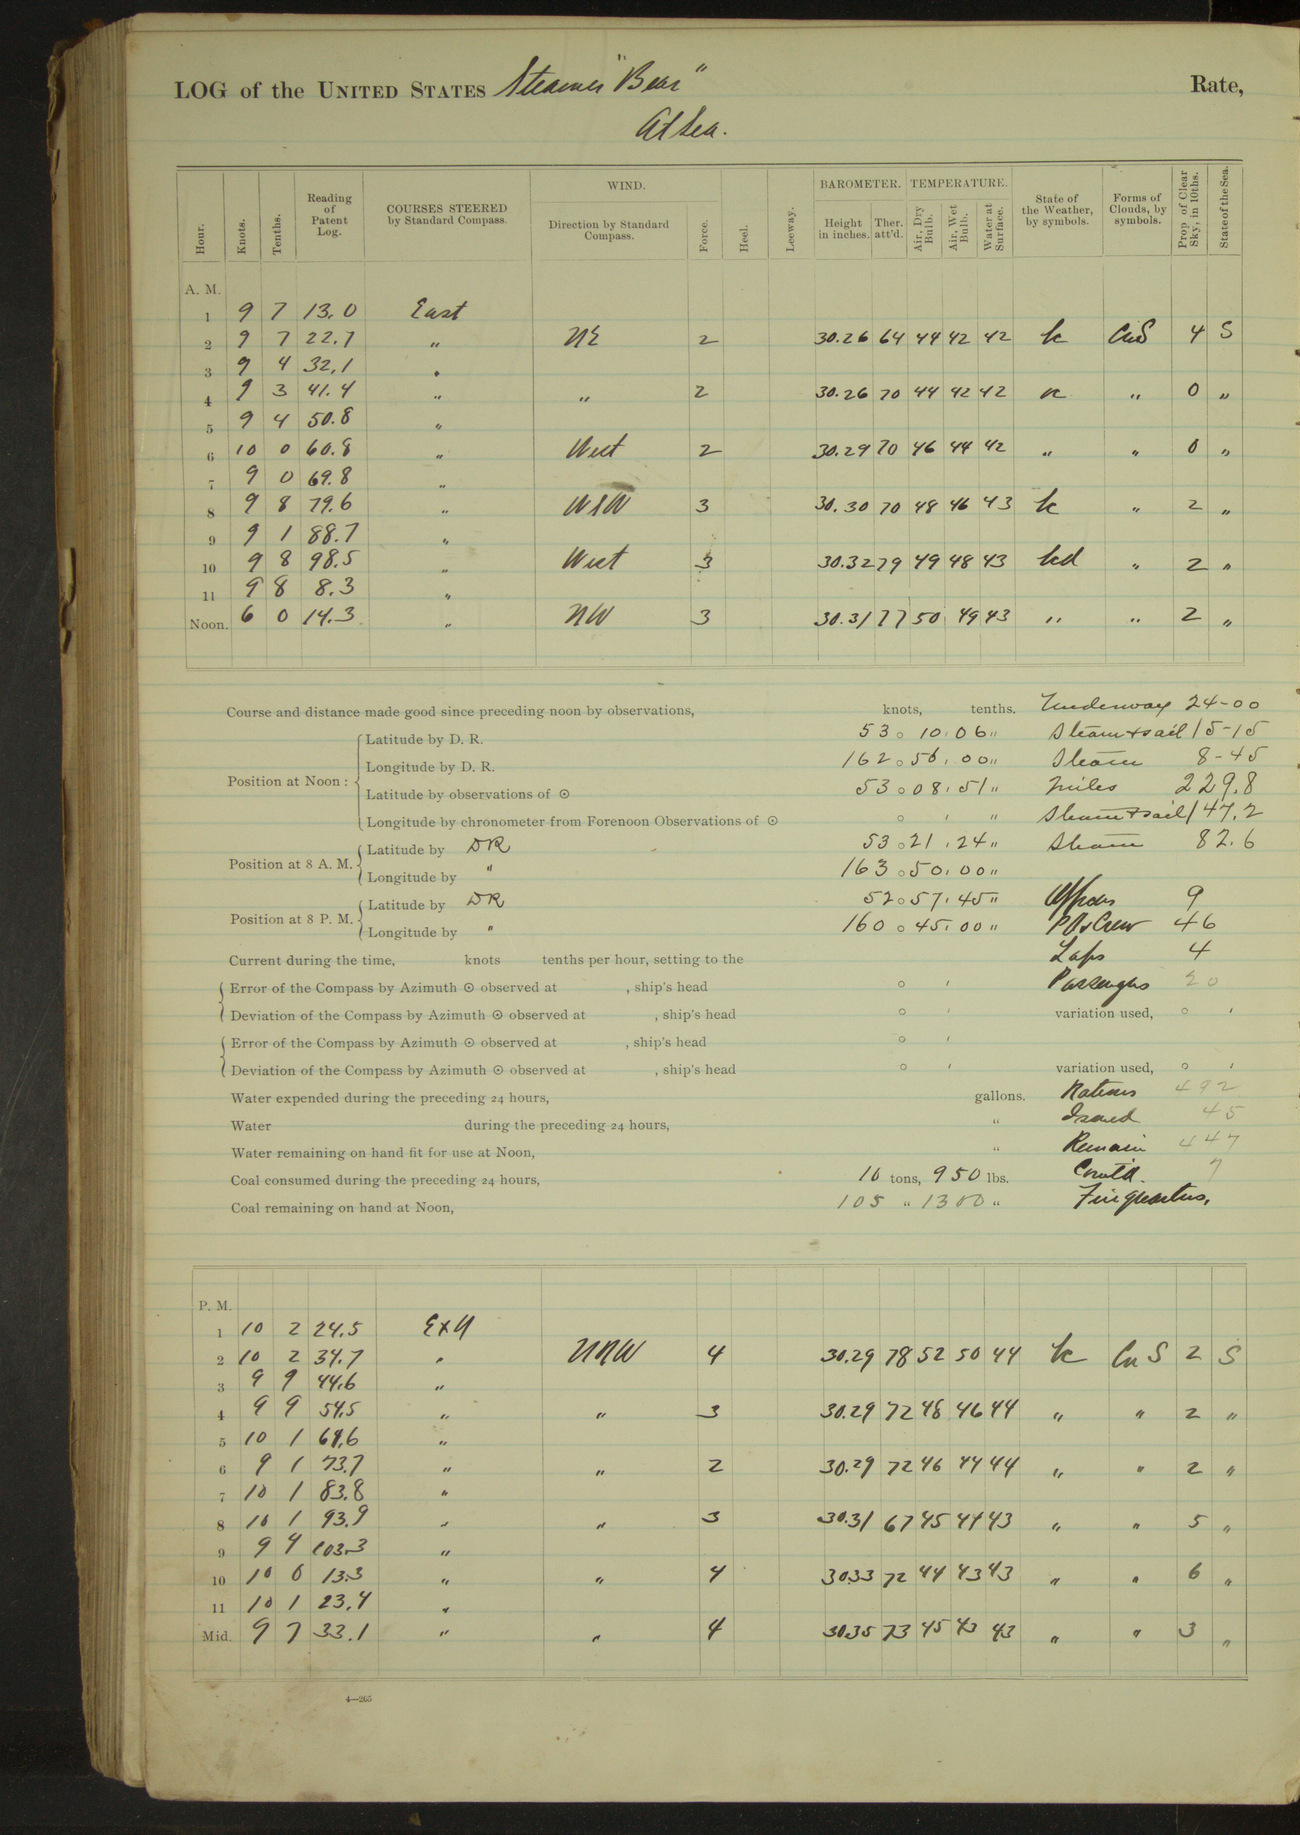 LOG of the UNITED STATES Steamer "Bear" Rate,
At Sea.
Hour. Knots. Tenths. Reading of Patent Log. COURSES STEERED by Standard Compass. WIND. Direction by Standard Compass. Force. Heel. Leeway. BAROMETER. Height in inches. Ther. att'd. TEMPERATURE. Air, Dry Bulb. Air, Wet Bulb. Water at Surface. State of the Weather, by symbols. Forms of Clouds, by symbols. Prop. of Clear Sky, in 10ths. State of the Sea.
A. M.
1 9 7 13.0 East
2 9 7 22.7 " NE 2 30.26 64 44 42 42 bc CuS 4 S
3 9 4 32.1 "
4 9 3 41.4 " " 2 30.26 70 44 42 42 " 0 "
5 9 4 50.8 "
6 10 0 60.8 " West 2 30.29 70 46 44 42 " " 0 "
7 9 0 69.8 "
8 9 8 79.6 " WSW 3 30.30 70 48 46 43 bc " 2 "
9 9 1 88.7 "
10 9 8 98.5 " West 3 30.32 79 49 48 43 bcd " 2 "
11 9 8 8.3 "
Noon. 6 0 14.3 " NW 3 30.31 77 50 49 43 " " 2 "
Course and distance made good since preceding noon by observations, knots, tenths. Underway 24-00
Latitude by D. R. 53 ° 10 ' 06 " Steam & sail 15-15
Longitude by D. R. 162 ° 56 ' 00 " Steam 8-45
Position at Noon :
Latitude by observations of ☉ 53 ° 08 ' 51 " Miles 229.8
Longitude by chronometer from Forenoon Observations of ☉ ° ' " Steam & sail 147.2
Position at 8 A. M. Latitude by DR 53 ° 21 ' 24 " Steam 82.6
Longitude by " 163 ° 50 ' 00 "
Position at 8 P. M. Latitude by DR 52 ° 57 ' 45 " Officers 9
Longitude by " 160 ° 45 ' 00 " POs Crew 46
Current during the time, knots tenths per hour, setting to the Laps 4
Error of the Compass by Azimuth ☉ observed at , ship's head ° ' Passengers 20
Deviation of the Compass by Azimuth ☉ observed at , ship's head ° ' variation used, ° '
Error of the Compass by Azimuth ☉ observed at , ship's head ° '
Deviation of the Compass by Azimuth ☉ observed at , ship's head ° ' variation used, ° '
Water expended during the preceding 24 hours, gallons. Rations 492
Water during the preceding 24 hours, " Issued 45
Water remaining on hand fit for use at Noon, " Remain 447
Coal consumed during the preceding 24 hours, 10 tons, 950 lbs. 7
Coal remaining on hand at Noon, 105 " 1300 " Fire quarters.
P. M.
1 10 2 24.5 ExN
2 10 2 34.7 " NNW 4 30.29 78 52 50 44 bc Cu S 2 S
3 9 9 44.6 "
4 9 9 54.5 " " 3 30.29 72 48 46 44 " " 2 "
5 10 1 64.6 "
6 9 1 73.7 " " 2 30.29 72 46 44 44 " " 2 "
7 10 1 83.8 "
8 10 1 93.9 " " 3 30.31 67 45 44 43 " " 5 "
9 9 4 103.3 "
10 10 0 13.3 " " 4 30.33 72 44 43 43 " " 6 "
11 10 1 23.4 "
Mid. 9 7 33.1 " " 4 30.35 73 45 43 43 " " 3 "
4—265